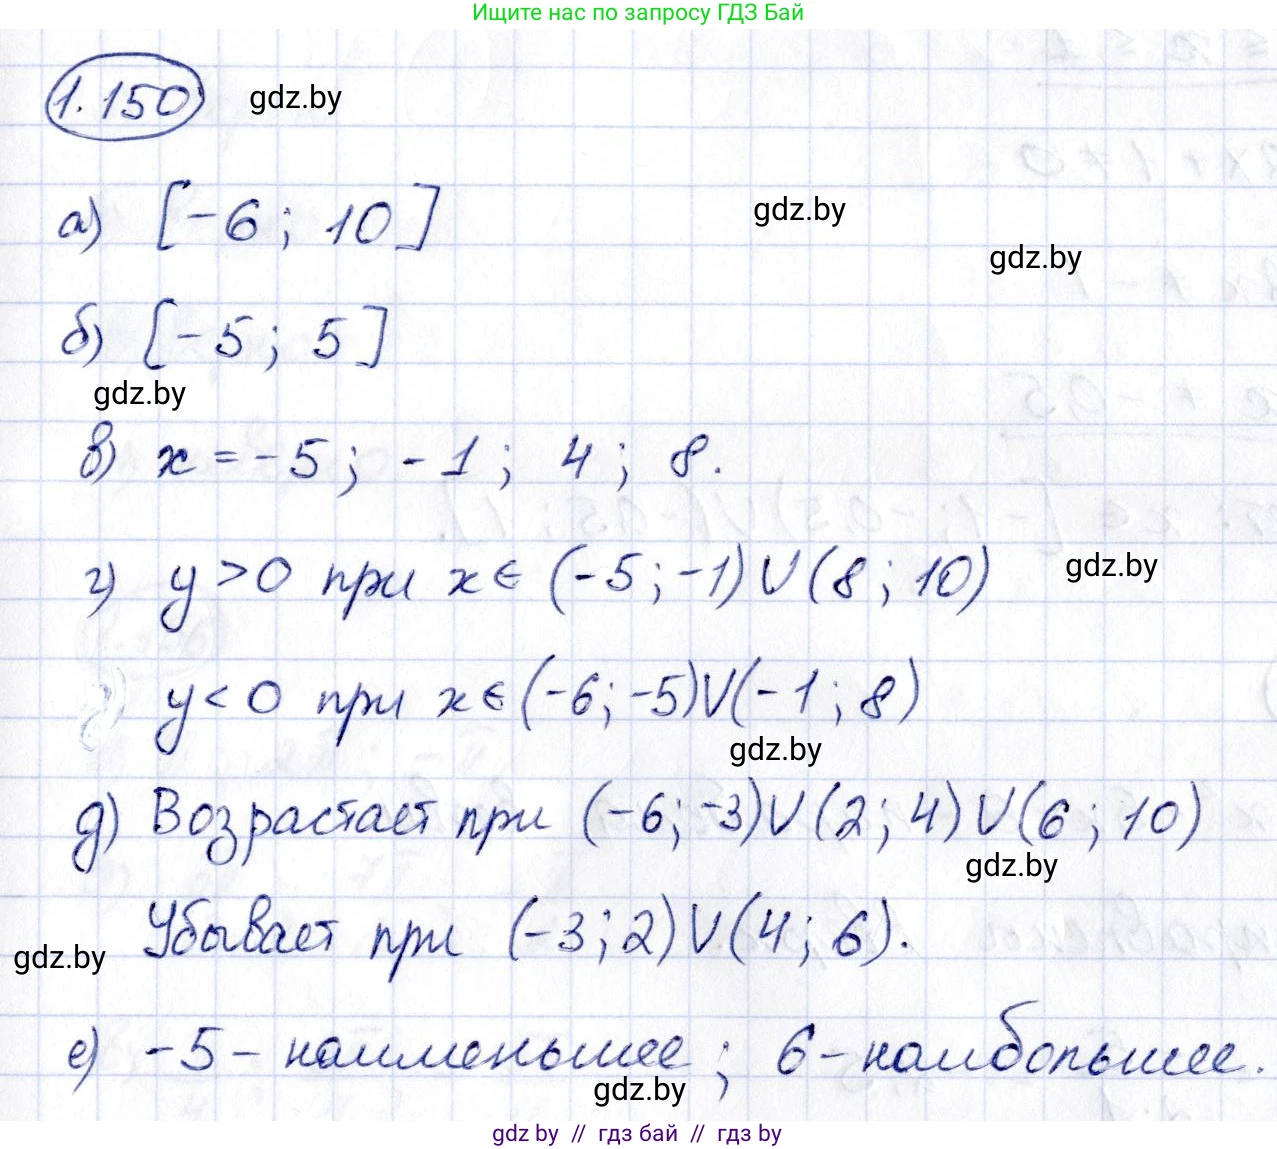 Ищите нас по запросу ГДЗ Бай
1.150 gdz.by
а) [-6; 10] gdz.by
gdz.by
б) [-5; 5]
gdz.by
в) x = -5; -1; 4; 8.
г) y > 0 при x ∈ (-5; -1) ∪ (8; 10) gdz.by
y < 0 при x ∈ (-6; -5) ∪ (-1; 8)
gdz.by
д) Возрастает при (-6; -3) ∪ (2; 4) ∪ (6; 10)
gdz.by
Убывает при (-3; 2) ∪ (4; 6).
gdz.by
е) -5 - наименьшее; 6 - наибольшее.
gdz.by
gdz by // гдз бай // гдз by